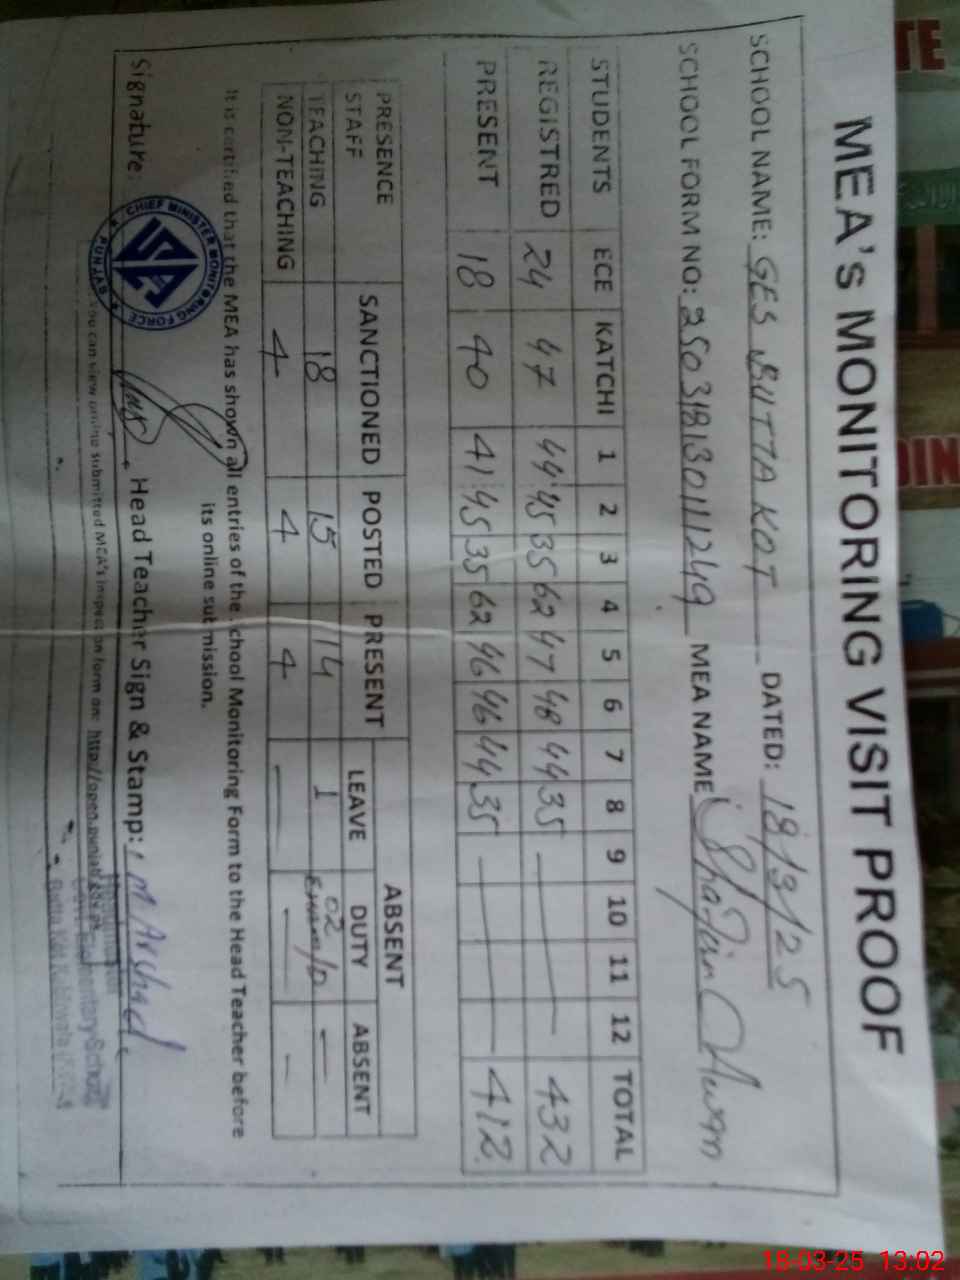 MEA's MONITORING VISIT PROOF
SCHOOL NAME: GES BUTTA KOT DATED: 18/3/25
SCHOOL FORM NO: 2503181301111249 MEA NAME
STUDENTS ECE KATCHI 1 2 3 4 5 6 7 8 9 10 11 12 TOTAL
REGISTRED 24 47 44 45 35 62 47 48 44 35 — 432
PRESENT 18 40 41 45 35 62 46 46 44 35 — 412
PRESENCE STAFF SANCTIONED POSTED PRESENT ABSENT
LEAVE DUTY ABSENT
TEACHING 18 15 14 1 02 —
NON-TEACHING 4 4 4 — — —
It is certified that the MEA has shown all entries of the School Monitoring Form to the Head Teacher before
its online submission.
Signature: Head Teacher Sign & Stamp: M Arshad
CHIEF MINISTER MONITORING FORCE
PUNJAB
you can view online submitted MEA's inspection form on: http://open.punjab.gov.pk
TE
DIN
18-03-25 13:02